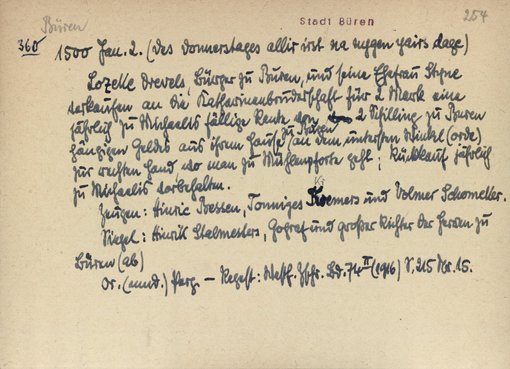 Büren
Stadt Büren
254
360
1500 Jan. 2. (des donnerstages allir irst na nygen jairs dage)
Lozelle Drevels, Bürger zu Büren, und seine Ehefrau Styne
verkaufen an die Katharinenbruderschaft für 2 Mark eine
jährlich zu Michaelis fällige Rente von 2 Schilling zu Büren
gängigen Geldes aus ihrem Hause zu Büren (an dem untersten Winkel (orde)
zur rechten Hand, wo man zu Mühlenpforte geht; Rückkauf jährlich
zu Michaelis vorbehalten.
Zeugen: Hinric Boessen, Tonniges Kremers und Volmer Schomeller.
Siegel: Hinrik Stelmesters, Gograf und großer Richter der Herren zu
Büren (ab)
Or. (mnd.) Perg. – Regest: Westf. Ztschr. Bd. 74 II (1916) S. 215 Nr. 15.